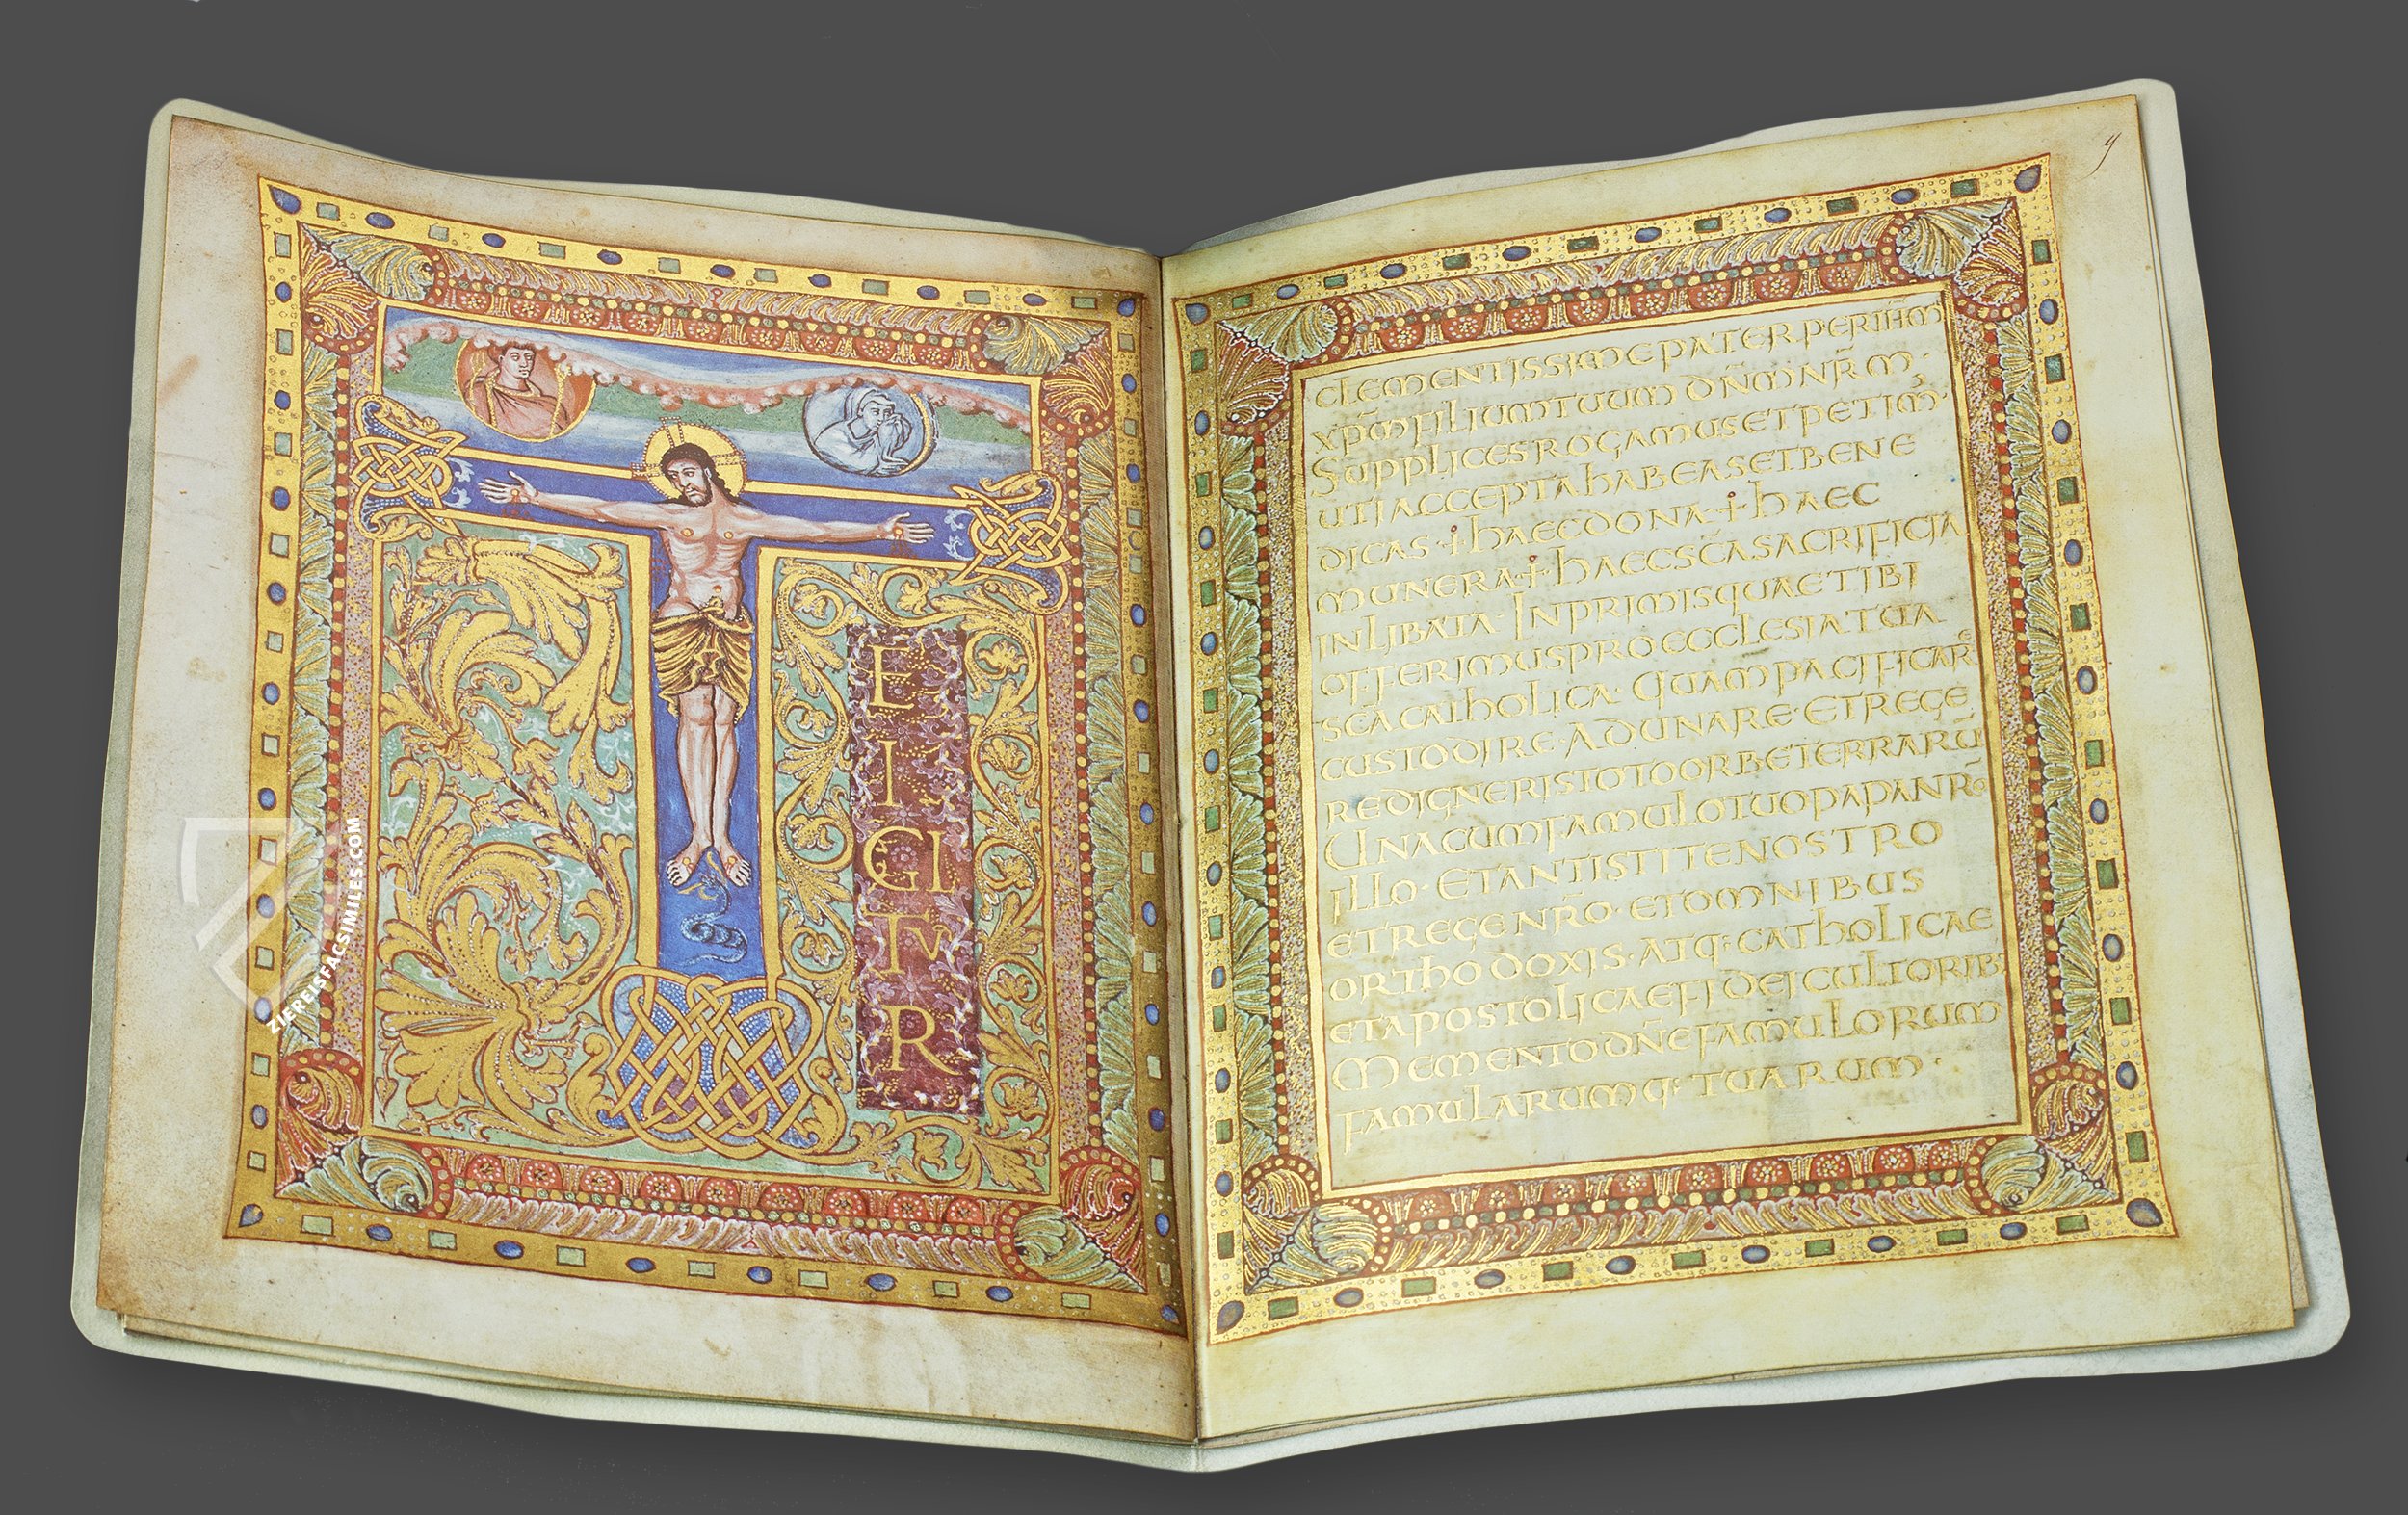 E
I
GI
TV
R
ZIEREISFACSIMILES.COM
9
CLEMENTISSIME PATER PER IHM
XPM FILIUM TUUM DNM NRM·
SUPPLICES ROGAMUS ET PETIM;
UTI ACCEPTA HABEAS ET BENE
DICAS · ☩ HAEC DONA · ☩ HAEC
MUNERA · ☩ HAEC SCA SACRIFICIA
INLIBATA · INPRIMIS QUAE TIBI
OFFERIMUS PRO ECCLESIA TUA
SCA CATHOLICA · QUAM PACIFICARE
CUSTODIRE · ADUNARE · ET REGE
RE DIGNERIS TOTO ORBE TERRARŪ
UNA CUM FAMULO TUO PAPA NRO
ILLO · ET ANTISTITE NOSTRO
ET REGE NRO · ET OMNIBUS
ORTHODOXIS · ATQ; CATHOLICAE
ET APOSTOLICAE FIDEI CULTORIB;
MEMENTO DNE FAMULORUM
FAMULARUMQ; TUARUM ·